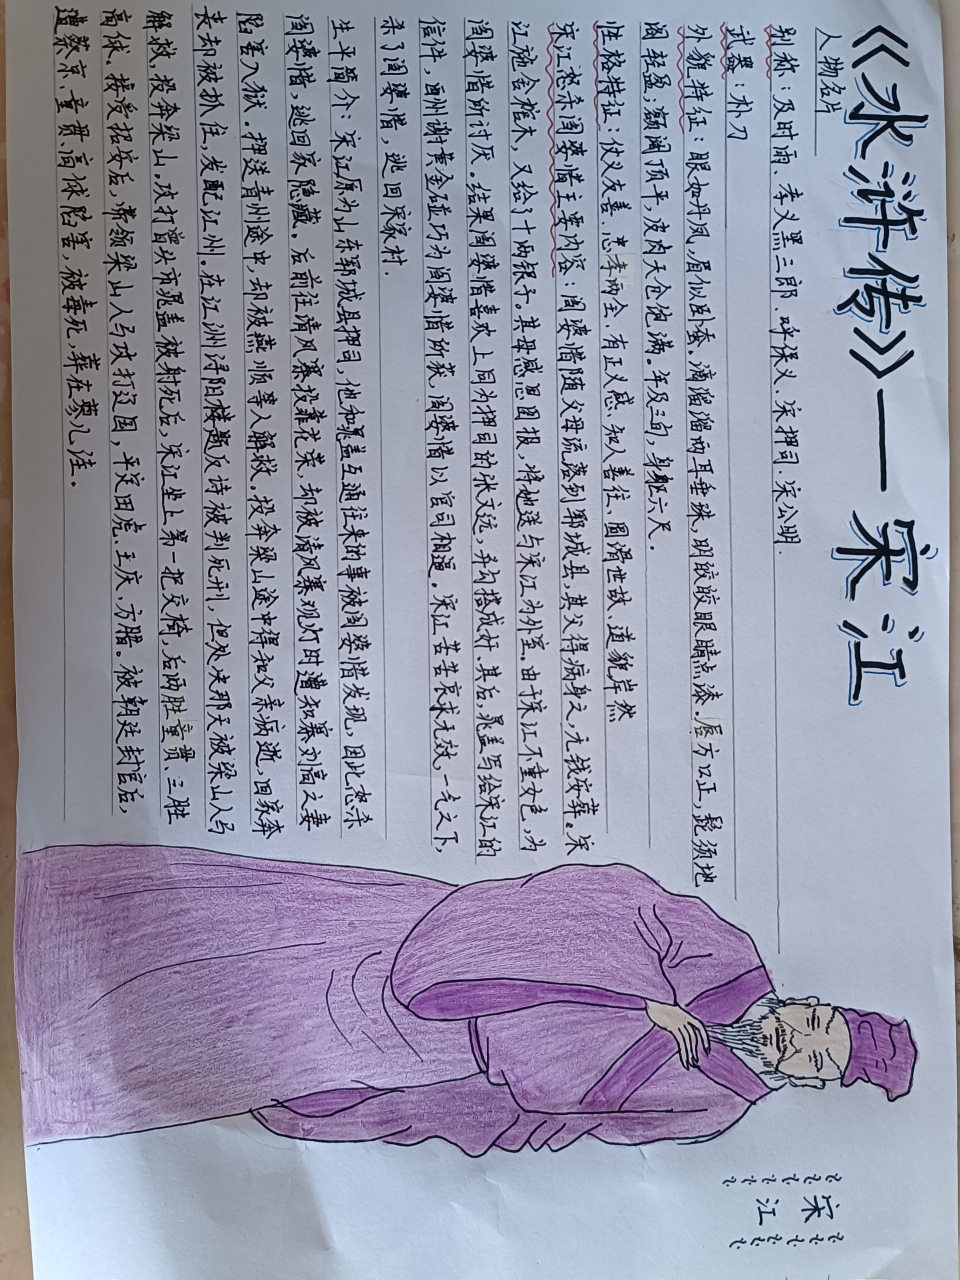 《水浒传》——宋江
人物名片
别称：及时雨、孝义黑三郎、呼保义、宋押司、宋公明.
武器：朴刀
外貌特征：眼如丹凤，眉似卧蚕。滴溜溜两耳垂珠，明皎皎眼睛点漆，唇方口正，髭须地
阁轻盈；额阔顶平，皮肉天仓饱满。年及三旬，身躯六尺.
性格特征：仗义友善，忠孝两全、有正义感、知人善任、圆滑世故、道貌岸然
宋江怒杀阎婆惜主要内容：阎婆惜随父母流落到郓城县，其父得病身亡，无钱安葬。宋
江施舍棺木，又给了十两银子。其母感恩图报，将她送与宋江为外室。由于宋江不重女色，为
阎婆惜所讨厌。结果阎婆惜喜欢上同为押司的张文远，并勾搭成奸.其后，晁盖写给宋江的
信件，酬谢黄金碰巧为阎婆惜所获，阎婆惜以官司相逼。宋江苦苦哀求无效，一气之下，
杀了阎婆惜，逃回宋家村.
生平简介：宋江原为山东郓城县押司，他和晁盖互通往来的事被阎婆惜发现，因此怒杀
阎婆惜，逃回家隐藏。后前往清风寨投靠花荣，却被清风寨观灯时遭知寨刘高之妻
陷害入狱.押送青州途中，却被燕顺等人解救。投奔梁山途中得知父亲病逝，回家奔
丧却被抓住，发配江州。在江洲浔阳楼题反诗被判死刑，但处决那天被梁山人马
解救，投奔梁山。攻打曾头市晁盖被射死后，宋江坐上第一把交椅，后两胜童贯、三胜
高俅。接受招安后，带领梁山人马攻打辽国，平定田虎、王庆、方腊。被朝廷封官后，
遭蔡京、童贯、高俅陷害，被毒死，葬在蓼儿洼。
宋
江